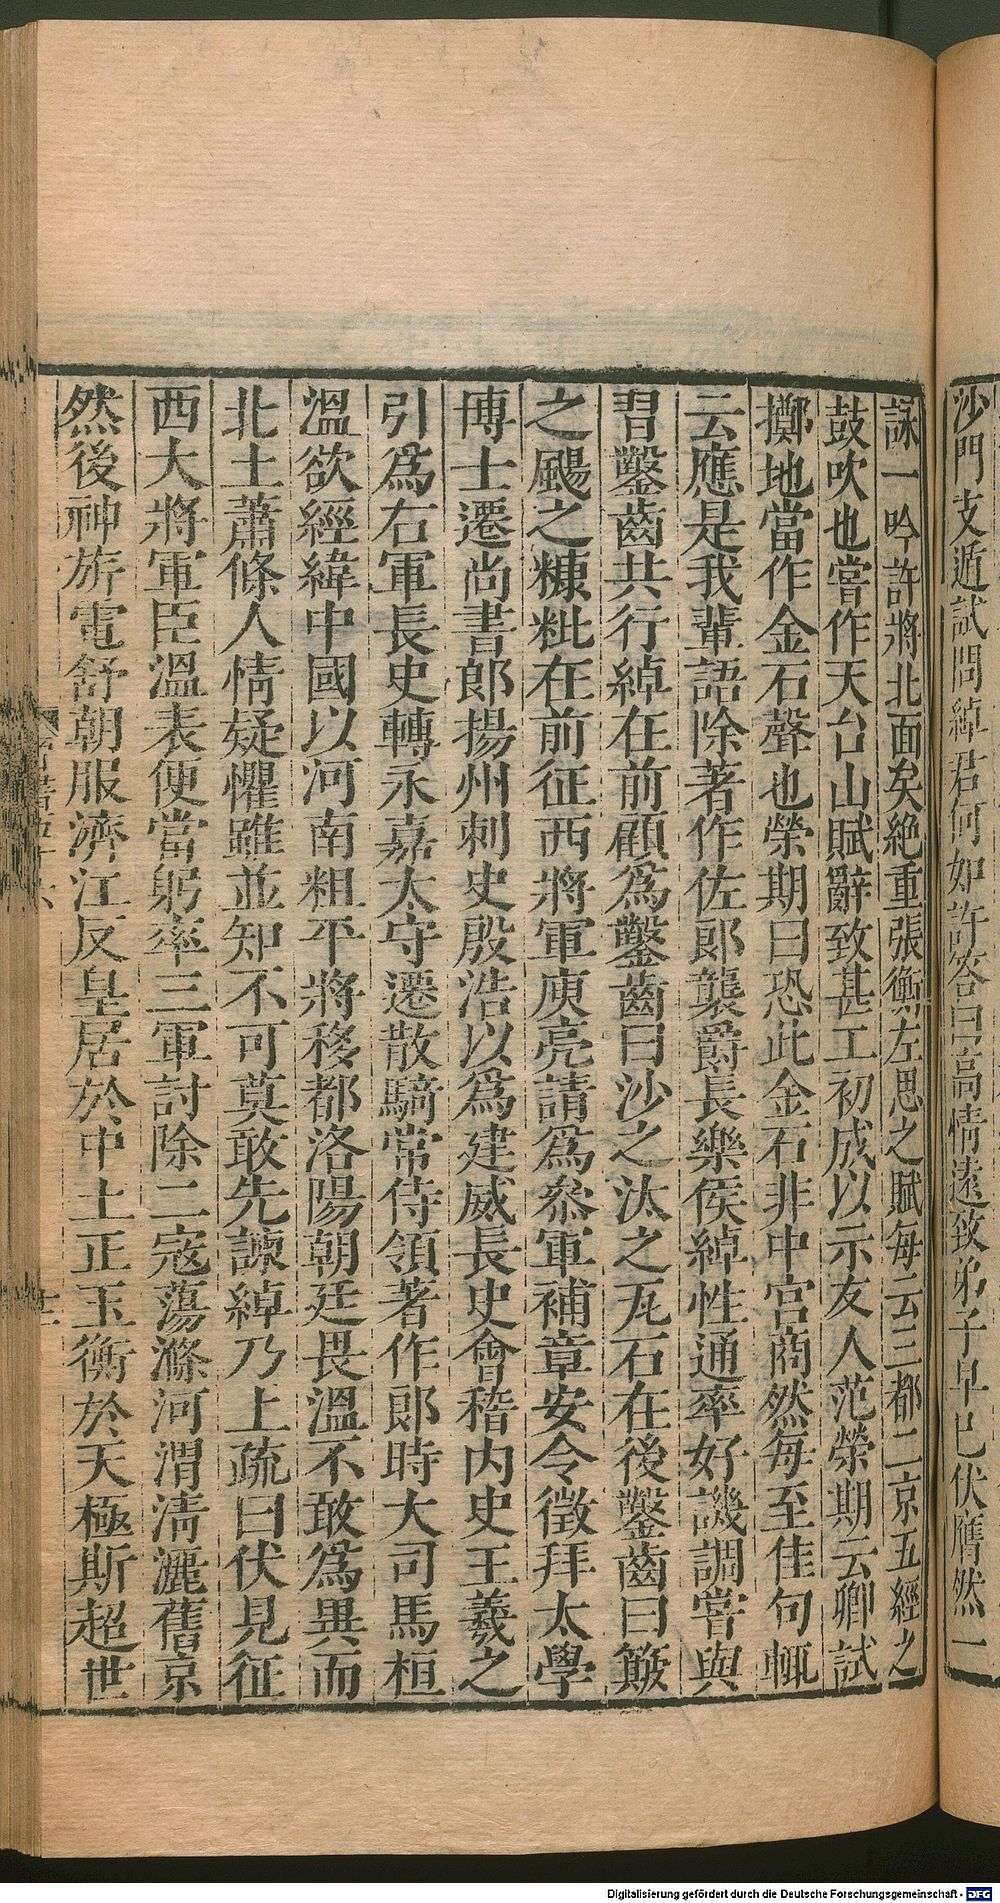 沙門支遁試問綽君何如許答曰高情遠致弟子早已伏膺然一
詠一吟許將北面矣絶重張衡左思之賦每云三都二京五經之
鼓吹也嘗作天台山賦辭致甚工初成以示友人范榮期云卿試
擲地當作金石聲也榮期曰恐此金石非中宮商然每至佳句輒
云應是我輩語除著作佐郎襲爵長樂侯綽性通率好譏調嘗與
習鑿齒共行綽在前顧爲鑿齒曰沙之汰之瓦石在後鑿齒曰簸
之颺之糠粃在前征西將軍庾亮請爲叅軍補章安令徵拜太學
博士遷尚書郎揚州刺史殷浩以爲建威長史會稽内史王羲之
引爲右軍長史轉永嘉太守遷散騎常侍領著作郎時大司馬桓
溫欲經緯中國以河南粗平將移都洛陽朝廷畏溫不敢爲異而
北土蕭條人情疑懼雖並知不可莫敢先諫綽乃上疏曰伏見征
西大將軍臣溫表便當躬率三軍討除二寇蕩滌河渭淸灑舊京
然後神旂電舒朝服濟江反皇居於中土正玉衡於天極斯超世
Digitalisierung gefördert durch die Deutsche Forschungsgemeinschaft - DFG